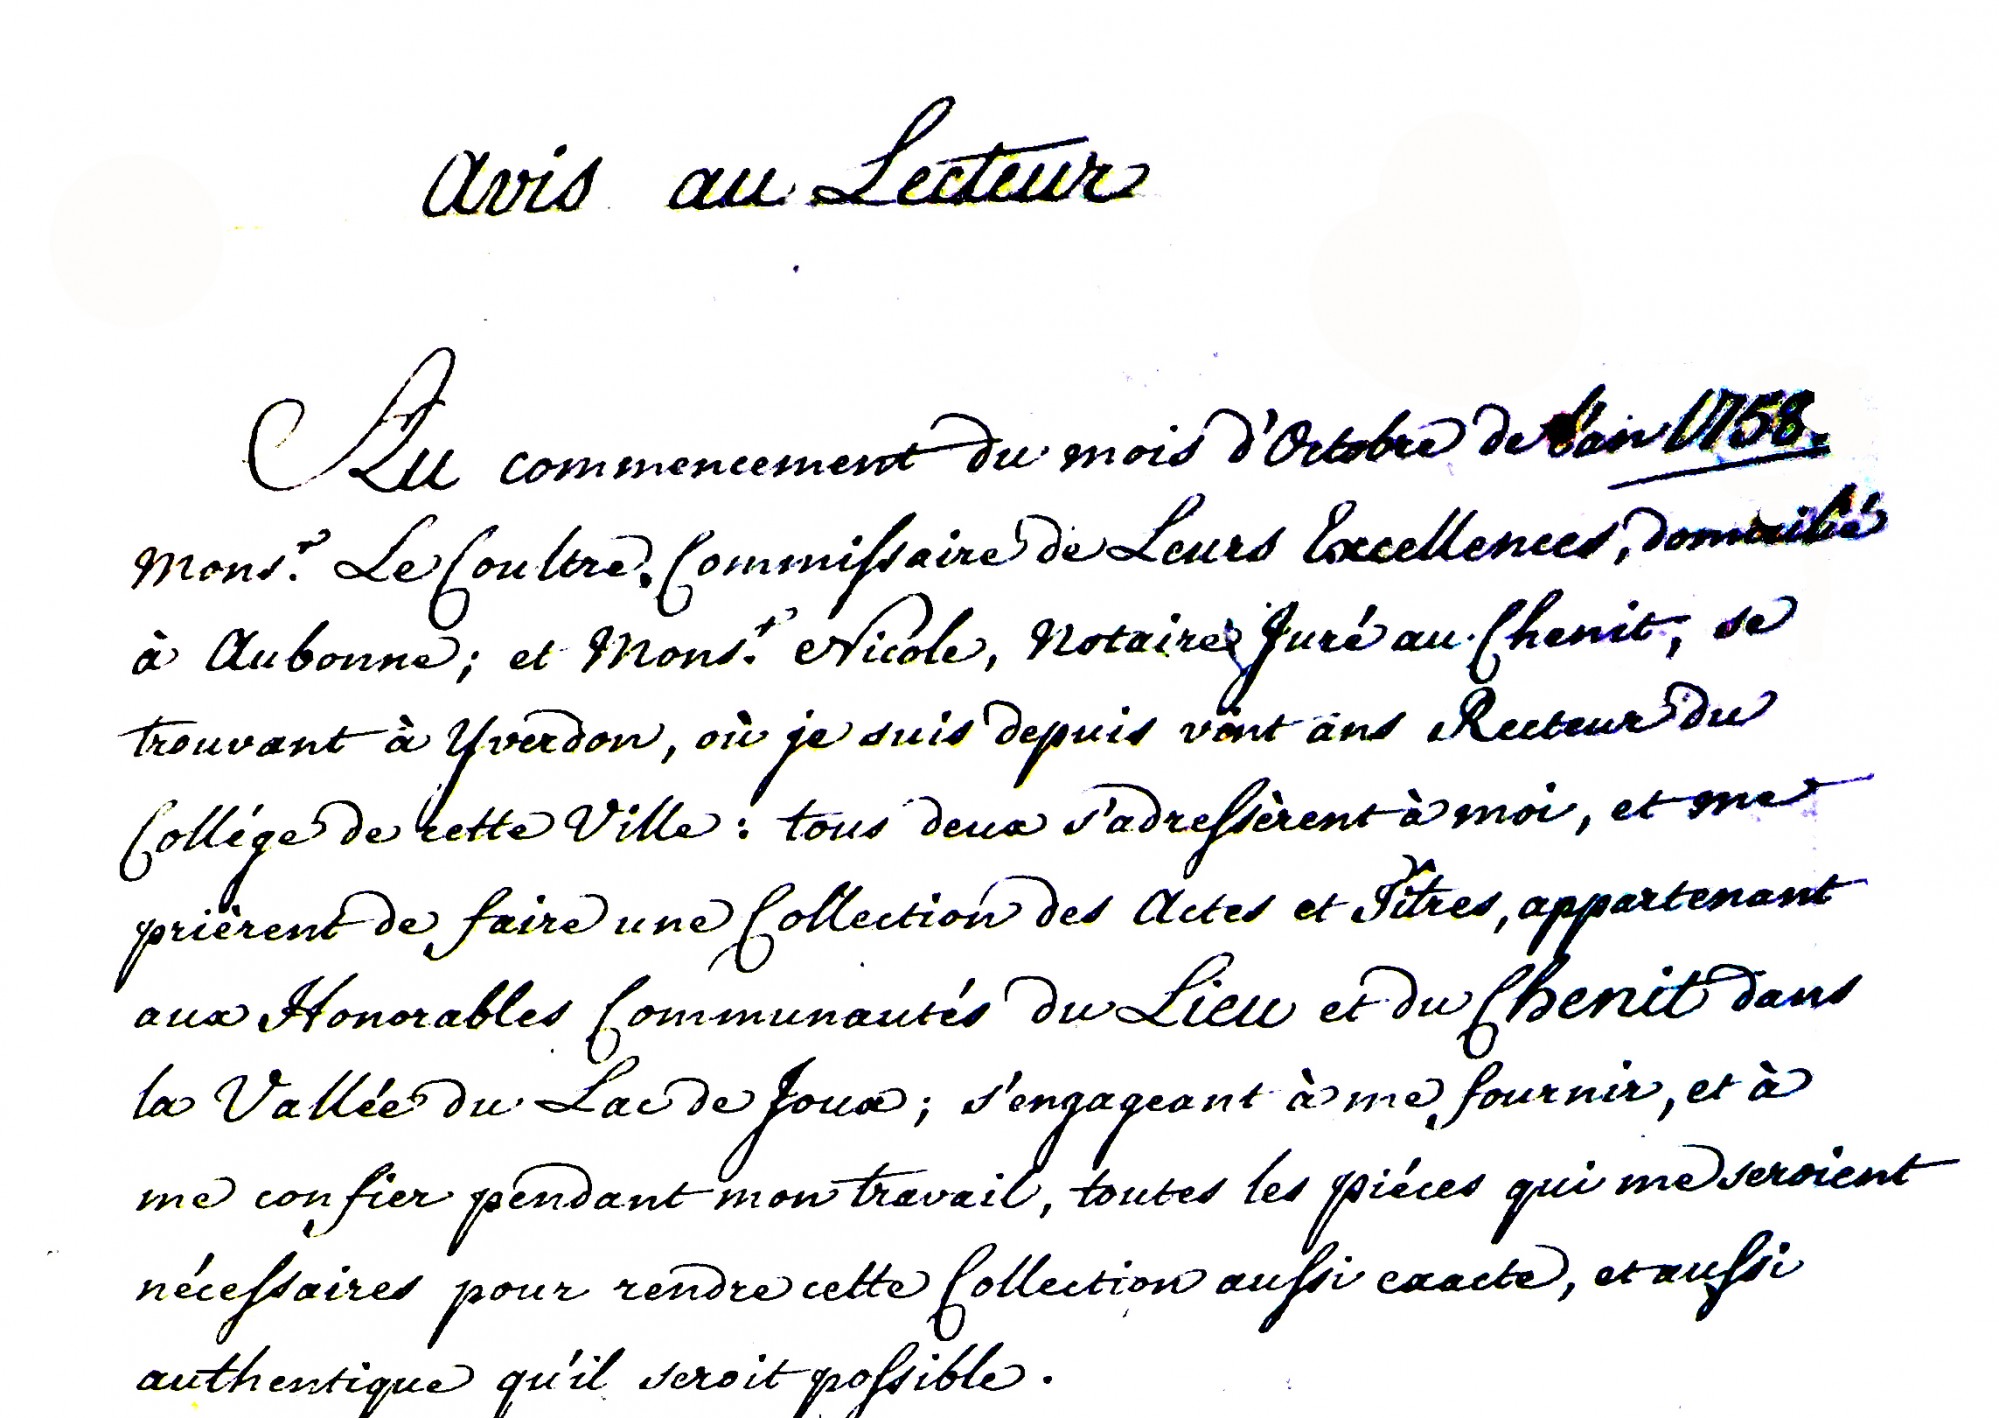 Avis au Lecteur
Au commencement du mois d'Octobre de l'an 1758.
Mons.r Le Coultre, Commissaire de Leurs Excellences, domicilié
à Aubonne; et Mons.r Nicole, Notaire Juré au Chenit, se
trouvant à Yverdon, où je suis depuis vint ans Recteur du
Collége de cette Ville: tous deux s'adressèrent à moi, et me
prièrent de faire une Collection des Actes et Titres, appartenant
aux Honorables Communautés du Lieu et du Chenit dans
la Vallée du Lac de Joux; s'engageant à me fournir, et à
me confier pendant mon travail, toutes les piéces qui me seroient
nécessaires pour rendre cette Collection aussi exacte, et aussi
authentique qu'il seroit possible.